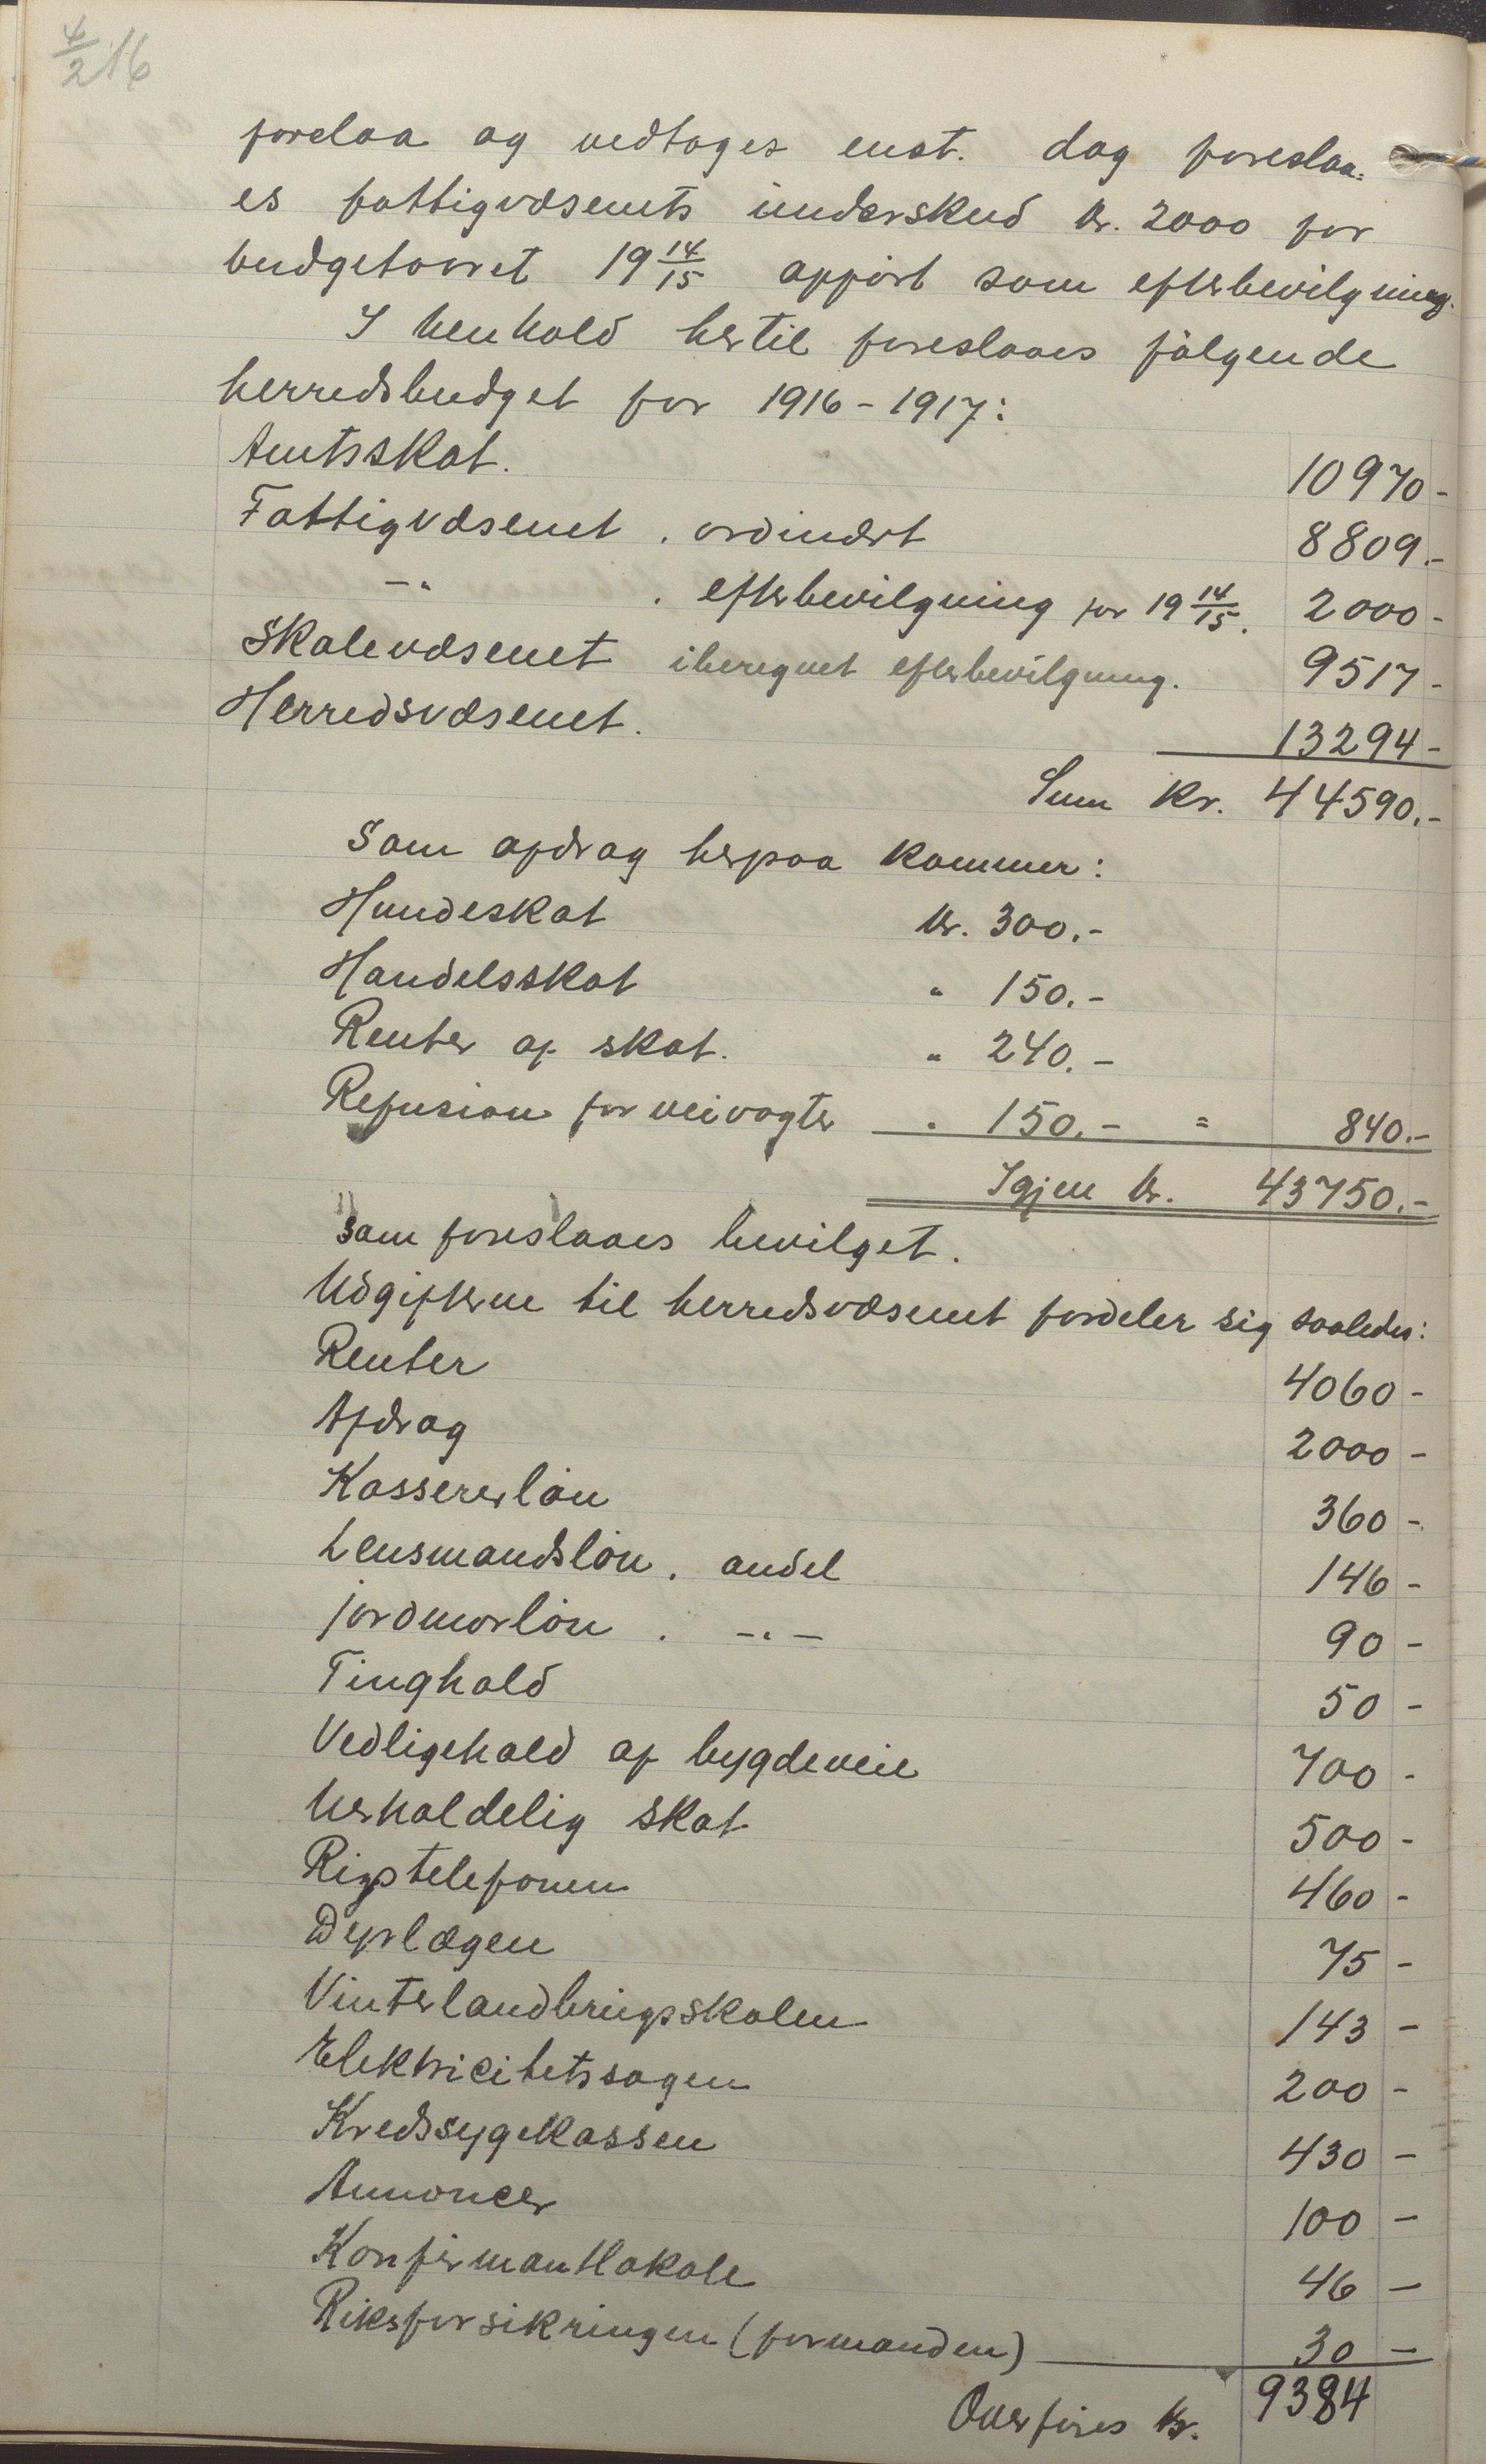 4/2 16
forelaa og vedtages enst. dog foreslaa-
es fattigvæsenets underskud kr. 2000 for
budgetaaret 19 14/15 opført som efterbevilgning.
I henhold hertil foreslaaes følgende
herredsbudget for 1916-1917:
Amtsskat. 10970-
Fattigvæsenet. ordinært 8809.-
-"- . efterbevilgning for 19 14/15. 2000-
Skolevæsenet iberegnet efterbevilgning. 9517-
Herredsvæsenet. 13294-
Sum kr. 44590.-
Som afdrag herpaa kommer:
Hundeskat kr. 300.-
Handelsskat " 150.-
Renter af skat. " 240.-
Refusion for veivogter " 150.- = 840.-
Igjen kr. 43750.-
som foreslaaes bevilget.
Udgifterne til herredsvæsenet fordeler sig saaledes:
Renter 4060-
Afdrag 2000-
Kassererløn 360-
Lensmandsløn. andel 146-
jordmorløn. -"- 90-
Tinghold 50-
Vedligehold af bygdeveie 700-
Uerholdelig skat 500-
Rigstelefonen 460-
Dyrlægen 75-
Vinterlandbrugsskolen 143-
Elektricitetssagen 200-
Kredssygekassen 430-
Annoncer 100-
Konfirmantlokale 46-
Riksforsikringen (formanden) 30-
Overføres kr. 9384